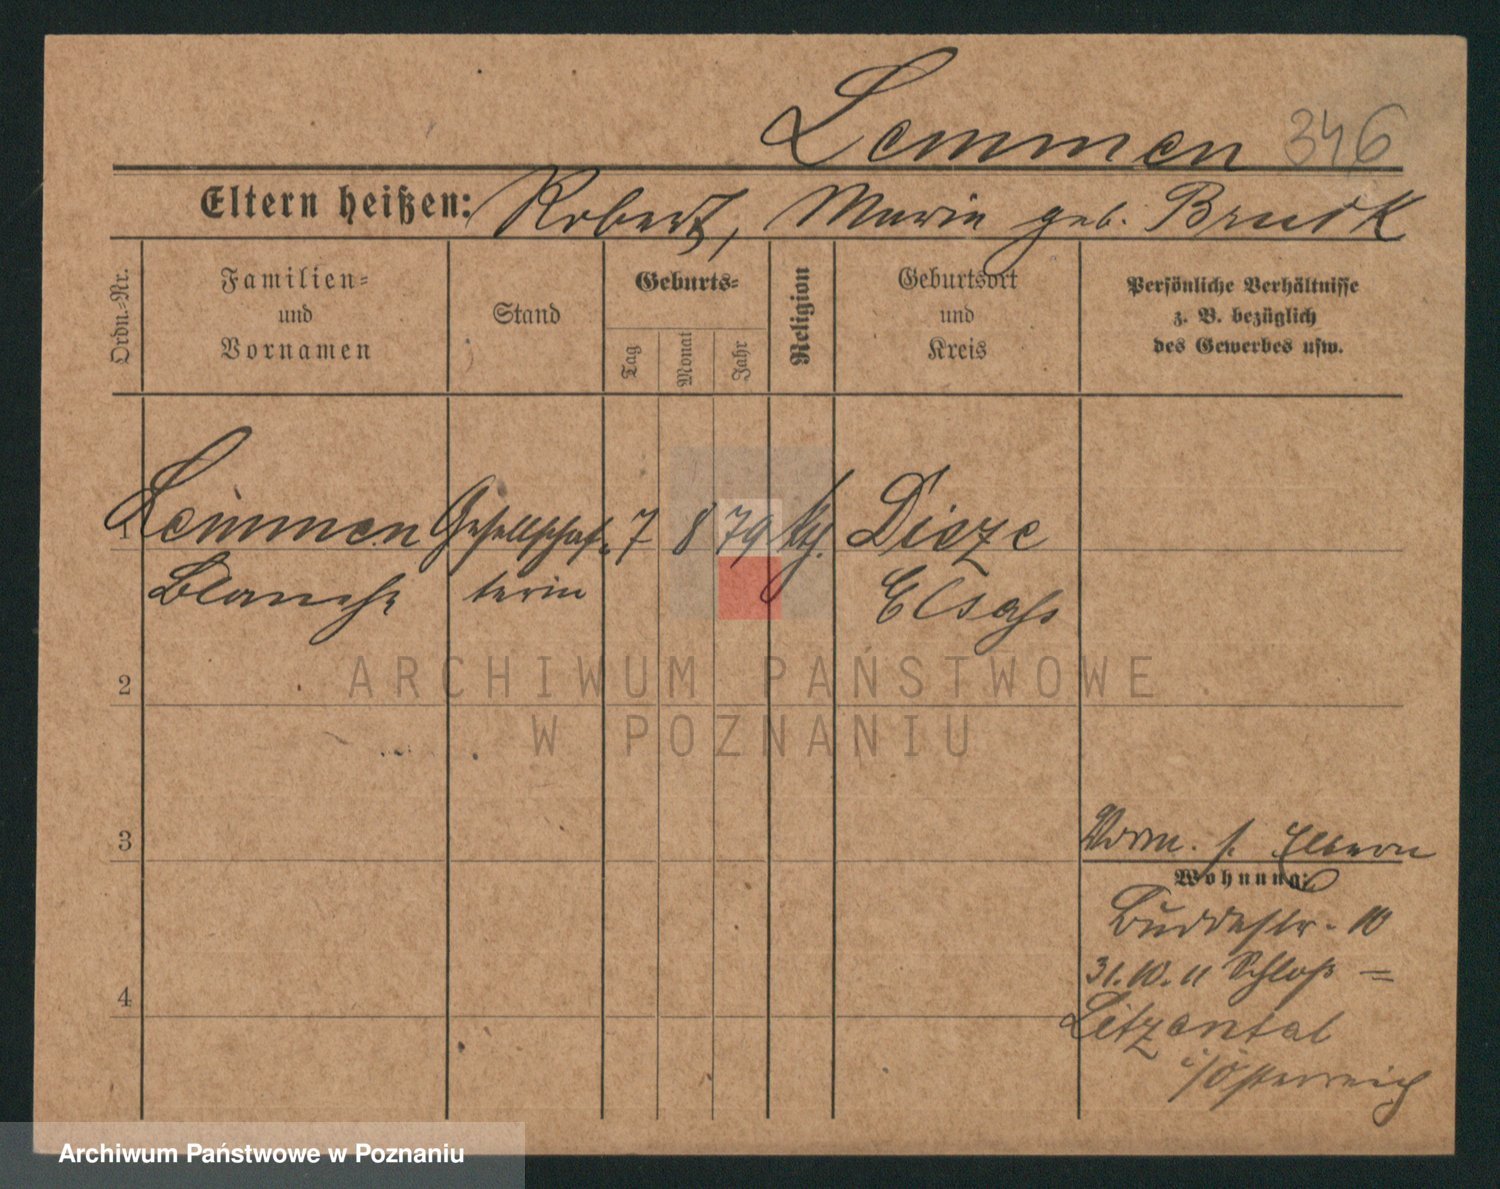 Lemmen 346
Eltern heißen: Robert, Marie geb. Bruck
Ordn.-Nr.
Familien-
und
Vornamen
Stand
Geburts-
Tag
Monat
Jahr
Religion
Geburtsort
und
Kreis
Persönliche Verhältnisse
z. B. bezüglich
des Gewerbes usw.
1 Lemmen Gesellschaf- 7 8 79 kth. Dieze
Blanche terin Elsaß
2
3
Elbern
Wohnung:
Buddestr. 10
31.10.11 Schloß
4
Litzental
i/Österreich
ARCHIWUM PAŃSTWOWE
W POZNANIU
Archiwum Państwowe w Poznaniu